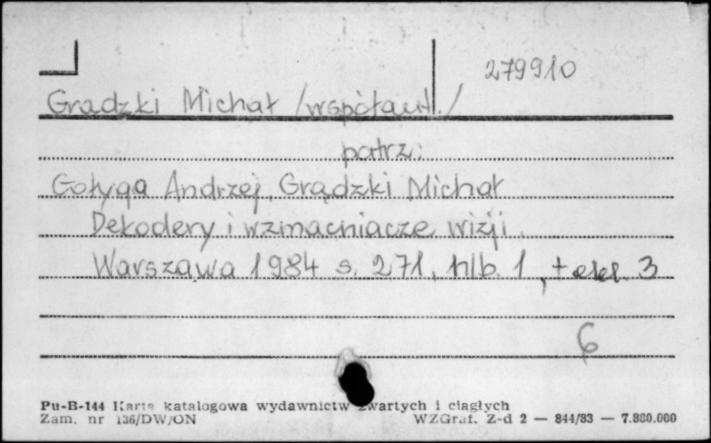 279910
Grądzki Michał /współaut./
patrz:
Gołyga Andrzej, Grądzki Michał
Dekodery i wzmacniacze wizji.
Warszawa 1984 s. 271, nlb. 1, + 3
6
Pu-B-144 Karta katalogowa wydawnictw zwartych i ciągłych
Zam. nr 136/DW/ON WZGraf. Z-d 2 — 844/83 — 7.800.000